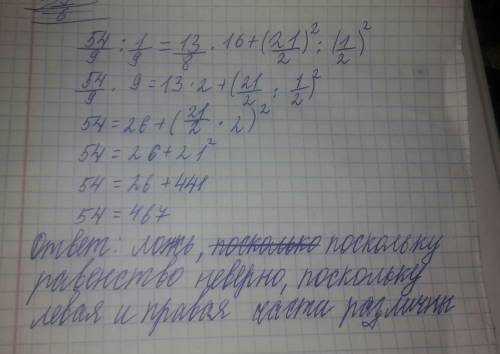 54/9 : 1/9 = 13/8 · 16 + (21/2)² : (1/2)²
54/9 · 9 = 13 · 2 + (21/2 : 1/2)²
54 = 26 + (21/2 · 2)²
54 = 26 + 21²
54 = 26 + 441
54 = 467
Ответ: ложь, посколько поскольку
равенство неверно, поскольку
левая и правая части различны